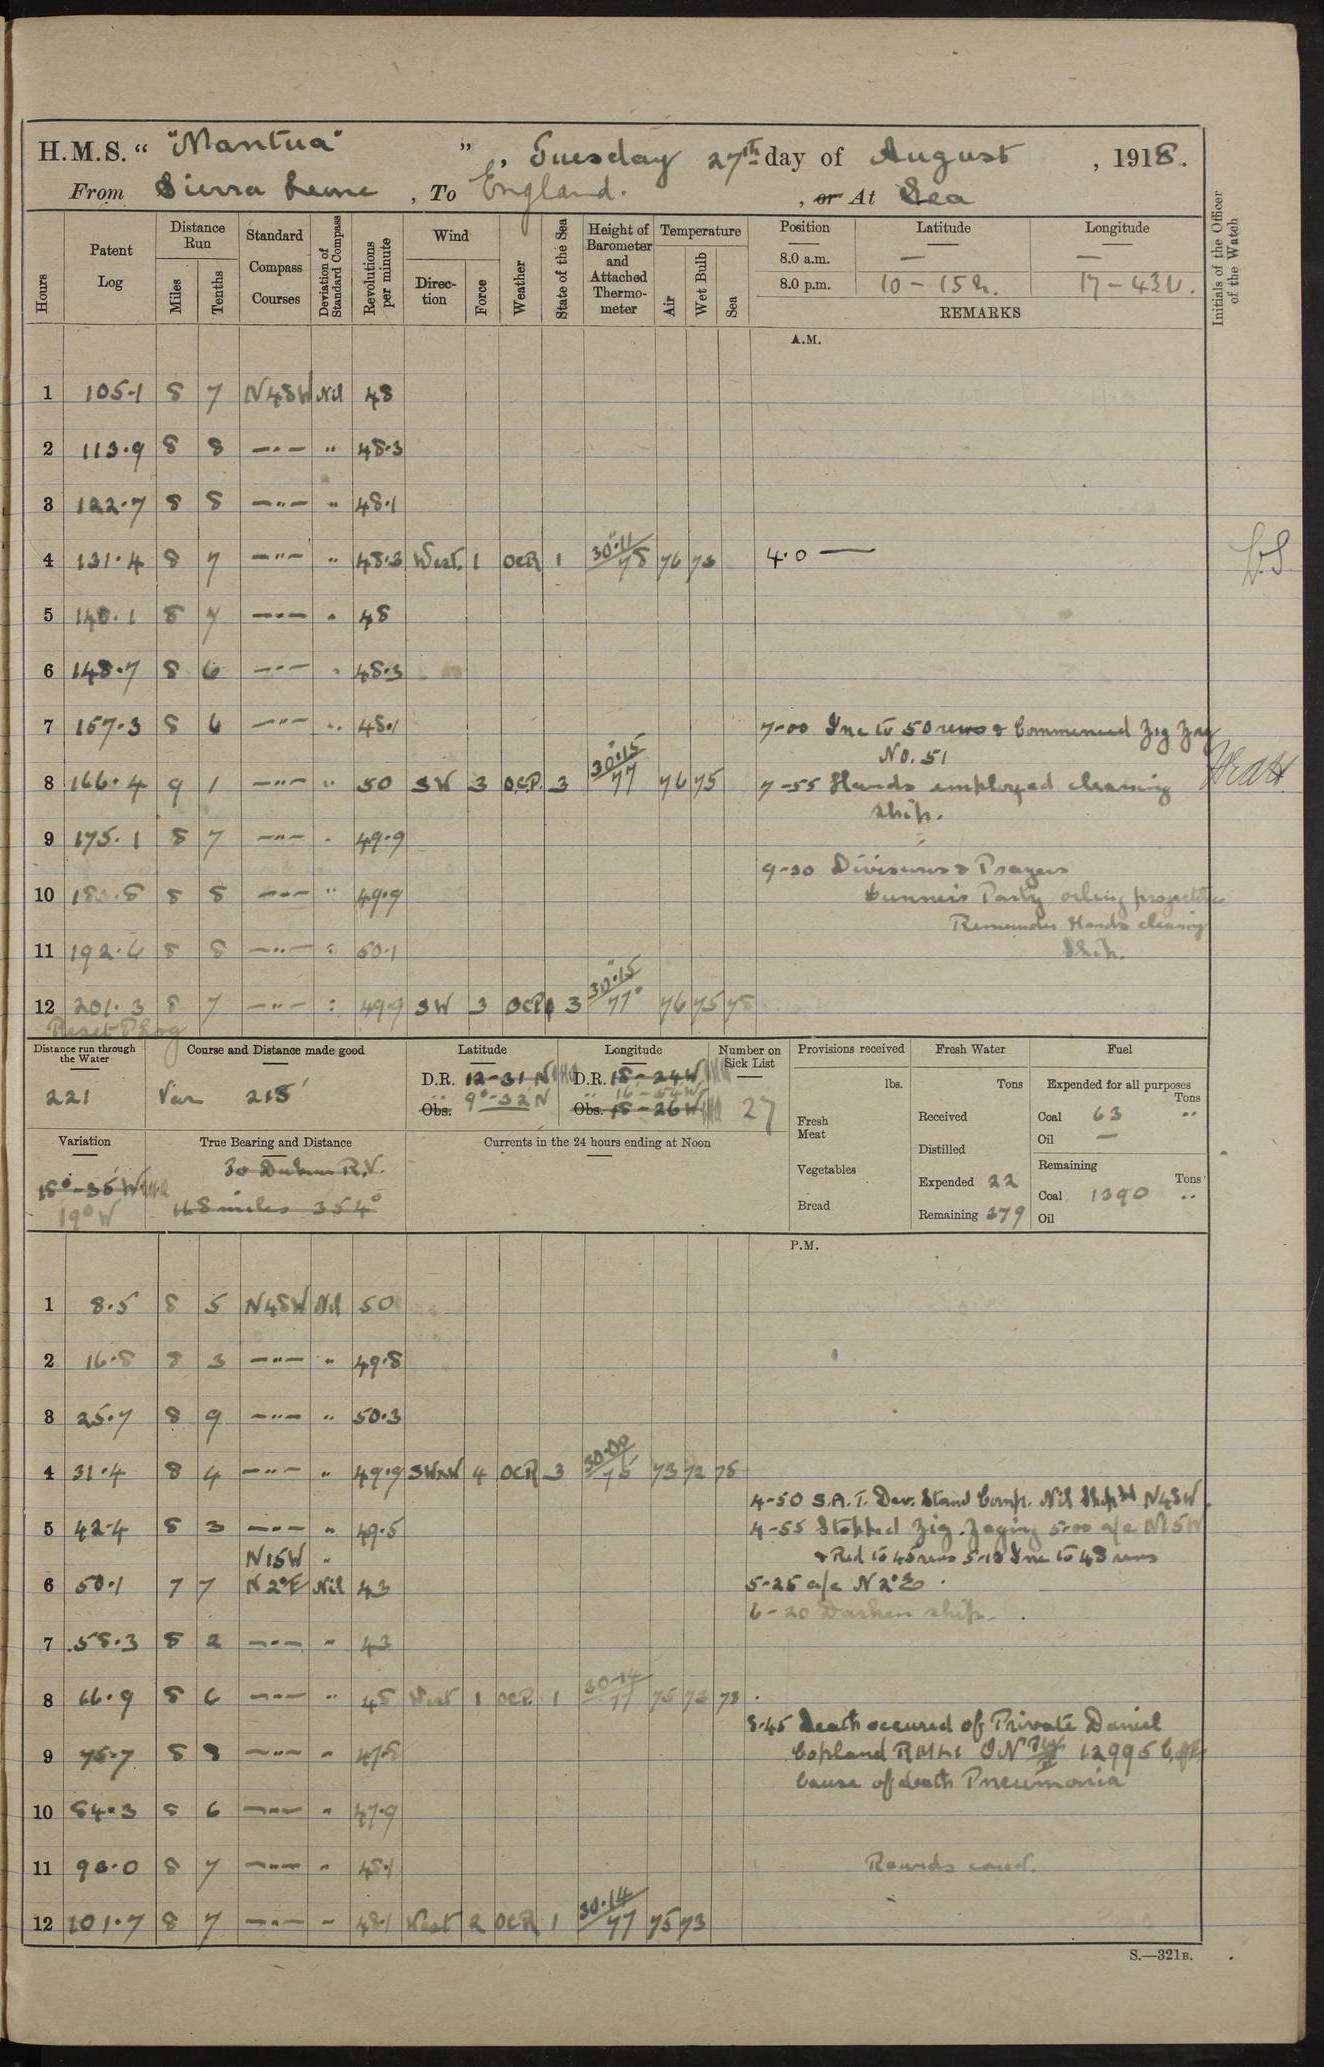 H.M.S. " "Mantua" ", Tuesday 27th day of August, 1918.
From Sierra Leone, To England. , or At Sea
Hours
Patent Log
Distance Run
Miles
Tenths
Standard Compass Courses
Deviation of Standard Compass
Revolutions per minute
Wind
Direction
Force
Weather
State of the Sea
Height of Barometer and Attached Thermometer
Temperature
Air
Wet Bulb
Sea
Position Latitude Longitude
8.0 a.m. — —
8.0 p.m. 10 - 15 17 - 43
REMARKS
Initials of the Officer of the Watch
A.M.
1 105.1 8 7 N48W Nil 48
2 113.9 8 8 —"— " 48.3
3 122.7 8 8 —"— " 48.1
4 131.4 8 7 —"— " 48.3 West. 1 OCR 1 30.11/78 76 73 4.0 —
5 140.1 8 7 —"— " 48
6 148.7 8 6 —"— " 48.3
7 157.3 8 6 —"— " 48.1 7-00 Inc to 50 revs & Commenced Zig Zag
No. 51
8 166.4 9 1 —"— " 50 SW 3 O.C.P. 3 30.15/77 76 75 7-55 Hands employed cleaning
ship.
9 175.1 8 7 —"— " 49.9
9-30 Divisions & Prayers
10 8 8 —"— " 49.9 Gunner's Party oiling projectiles
Remainder Hands cleaning
11 192.6 8 8 —"— " 50.1 Ship.
12 201.3 8 7 —"— " 49.9 SW 3 OCP 3 30.15/77° 76 75 78
Reset P Log
Distance run through the Water
221
Course and Distance made good
Var 215
Latitude
D.R. 12-31 N
Obs. 9°-32 N
Longitude
D.R. 18-24W
16-54W
Obs. 18-26W
Number on Sick List
27
Provisions received
lbs.
Fresh Meat
Vegetables
Bread
Fresh Water
Tons
Received
Distilled
Expended 22
Remaining 379
Fuel
Expended for all purposes
Tons
Coal 63 "
Oil —
Remaining
Tons
Coal 1390 "
Oil
Variation
18°-35'W
19°W
True Bearing and Distance
30 Dakar R.V.
118 miles 354°
Currents in the 24 hours ending at Noon
P.M.
1 8.5 8 5 N48W Nil 50
2 16.8 8 3 —"— " 49.8
3 25.7 8 9 —"— " 50.3
4 31.4 8 4 —"— " 49.9 SWxW 4 OCR 3 30.09/75 73 72 78
4-50 S.A.T. Dev. Stand Comp. Nil Ship's Hd N48W.
5 42.4 8 3 —"— " 49.5 4-55 Stopped Zig.Zaging 5-00 a/c N15W
N15W " & Red to 45 revs 5-10 Inc to 48 revs
6 50.1 7 7 N2°E Nil 43 5-25 a/c N2°E
6-20 Darken ship.
7 58.3 8 2 —"— " 43
8 66.9 8 6 —"— " 48 West 1 OCP. 1 30.14/77 75 73 78
8.45 Death occured of Private Daniel
9 75.7 8 8 —"— " 47.8 Copland RMLI ON 12995
Cause of death Pneumonia
10 84.3 8 6 —"— " 47.9
11 93.0 8 7 —"— " 48.1 Rounds correct.
12 101.7 8 7 —"— " 48.1 West 2 OCR 1 30.14/77 75 73
S.—321B.